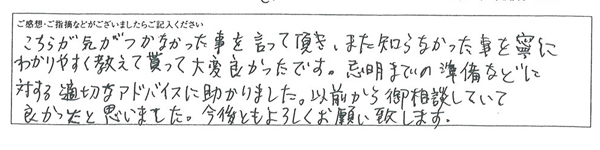 ご感想・ご指摘などがございましたらご記入ください
こちらが気がつかなかった事を言って頂き、また知らなかった事を寧に
わかりやすく教えて貰って大変良かったです。忌明までの準備などに
対する適切なアドバイスに助かりました。以前から御相談していて
良かったと思いました。今後ともよろしくお願い致します。